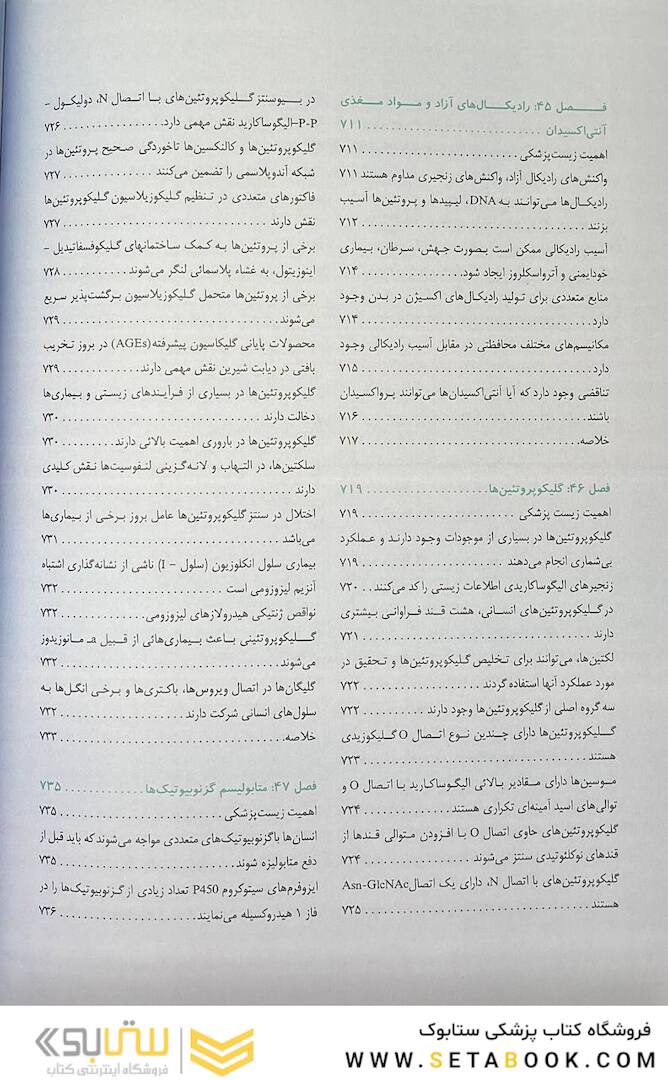 فصل ۴۵: رادیکال‌های آزاد و مواد مغذی
آنتی‌اکسیدان ........................ ۷۱۱
اهمیت زیست‌پزشکی ........................ ۷۱۱
واکنش‌های رادیکال آزاد، واکنش‌های زنجیری مداوم هستند ۷۱۱
رادیکال‌ها می‌توانند به DNA، لیپیدها و پروتئین‌ها آسیب
بزنند ........................ ۷۱۲
آسیب رادیکالی ممکن است بصورت جهش، سرطان، بیماری
خودایمنی و آترواسکلروز ایجاد شود. ........................ ۷۱۴
منابع متعددی برای تولید رادیکال‌های اکسیژن در بدن وجود
دارد. ........................ ۷۱۴
مکانیسم‌های مختلف محافظتی در مقابل آسیب رادیکالی وجود
دارد. ........................ ۷۱۵
تناقضی وجود دارد که آیا آنتی‌اکسیدان‌ها می‌توانند پرواکسیدان
باشند. ........................ ۷۱۶
خلاصه. ........................ ۷۱۷
فصل ۴۶: گلیکوپروتئین‌ها ........................ ۷۱۹
اهمیت زیست پزشکی ........................ ۷۱۹
گلیکوپروتئین‌ها در بسیاری از موجودات وجود دارند و عملکرد
بی‌شماری انجام می‌دهند ........................ ۷۱۹
زنجیرهای الیگوساکاریدی اطلاعات زیستی را کد می‌کنند. . ۷۲۰
در گلیکوپروتئین‌های انسانی، هشت قند فراوانی بیشتری
دارند ........................ ۷۲۱
لکتین‌ها، می‌توانند برای تخلیص گلیکوپروتئین‌ها و تحقیق در
مورد عملکرد آنها استفاده گردند ........................ ۷۲۲
سه گروه اصلی از گلیکوپروتئین‌ها وجود دارند ........................ ۷۲۲
گلیکوپروتئین‌ها دارای چندین نوع اتصال O گلیکوزیدی
هستند ........................ ۷۲۳
موسین‌ها دارای مقادیر بالائی الیگوساکارید با اتصال O و
توالی‌های اسید آمینه‌ای تکراری هستند. ........................ ۷۲۴
گلیکوپروتئین‌های حاوی اتصال O با افزودن متوالی قندها از
قندهای نوکلئوتیدی سنتز می‌شوند ........................ ۷۲۴
گلیکوپروتئین‌های با اتصال N، دارای یک اتصال Asn-GlcNAc
هستند ........................ ۷۲۵
در بیوسنتز گلیکوپروتئین‌های با اتصال N، دولیکول -
P-P-الیگوساکارید نقش مهمی دارد. ........................ ۷۲۶
گلیکوپروتئین‌ها و کالنکسین‌ها تاخوردگی صحیح پروتئین‌ها در
شبکه آندوپلاسمی را تضمین می‌کنند ........................ ۷۲۷
فاکتورهای متعددی در تنظیم گلیکوزیلاسیون گلیکوپروتئین‌ها
نقش دارند ........................ ۷۲۷
برخی از پروتئین‌ها به کمک ساختمانهای گلیکوفسفاتیدیل -
اینوزیتول، به غشاء پلاسمائی لنگر می‌شوند ........................ ۷۲۸
برخی از پروتئین‌ها متحمل گلیکوزیلاسیون برگشت‌پذیر سریع
می‌شوند ........................ ۷۲۹
محصولات پایانی گلیکاسیون پیشرفته(AGEs) در بروز تخریب
بافتی در دیابت شیرین نقش مهمی دارند. ........................ ۷۲۹
گلیکوپروتئین‌ها در بسیاری از فرآیندهای زیستی و بیماری‌ها
دخالت دارند ........................ ۷۳۰
گلیکوپروتئین‌ها در باروری اهمیت بالائی دارند. ........................ ۷۳۰
سلکتین‌ها، در التهاب و لانه‌گزینی لنفوسیت‌ها نقش کلیدی
دارند ........................ ۷۳۰
اختلال در سنتز گلیکوپروتئین‌ها عامل بروز برخی از بیماری‌ها
می‌باشد ........................ ۷۳۱
بیماری سلول انکلوزیون (سلول - I) ناشی از نشانه‌گذاری اشتباه
آنزیم لیزوزومی است ........................ ۷۳۲
نواقص ژنتیکی هیدرولازهای لیزوزومی. ........................ ۷۳۲
گلیکوپروتئینی باعث بیماری‌هائی از قبیل a- مانوزیدوز
می‌شوند ........................ ۷۳۲
گلیگان‌ها در اتصال ویروس‌ها، باکتری‌ها و برخی انگل‌ها به
سلول‌های انسانی شرکت دارند ........................ ۷۳۲
خلاصه. ........................ ۷۳۳
فصل ۴۷: متابولیسم گزنوبیوتیک‌ها ........................ ۷۳۵
اهمیت زیست‌پزشکی ........................ ۷۳۵
انسان‌ها با گزنوبیوتیک‌های متعددی مواجه می‌شوند که باید قبل از
دفع متابولیزه شوند ........................ ۷۳۵
ایزوفرم‌های سیتوکروم P450 تعداد زیادی از گزنوبیوتیک‌ها را در
فاز ۱ هیدروکسیله می‌نمایند. ........................ ۷۳۶
فروشگاه کتاب پزشکی ستابوک
WWW.SETABOOK.COM
ستابوک
فروشگاه اینترنتی کتاب